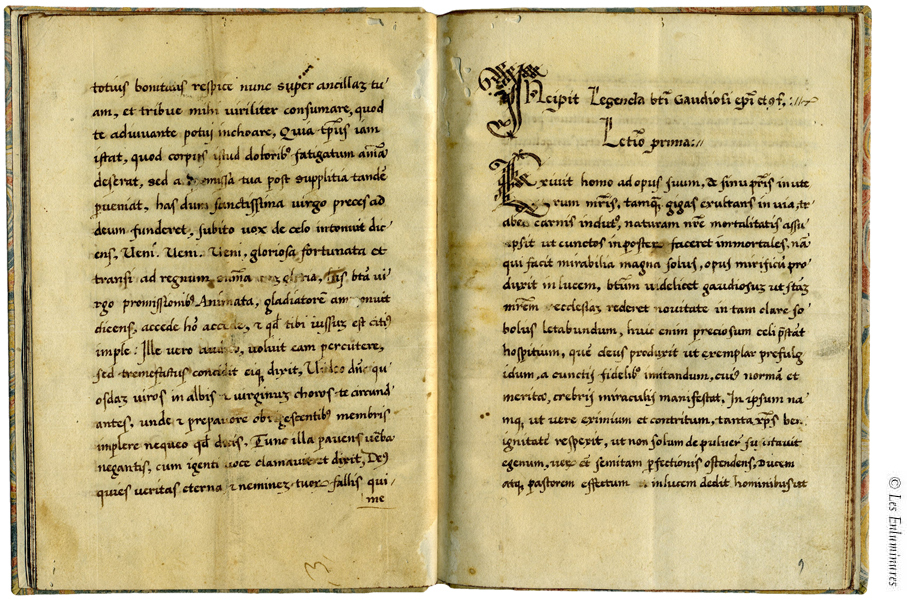 totius bonitatis respice nunc super ancillaz tu
am, et tribue mihi viriliter consumare, quod
te adiuvante potui inchoare, Quia tp̄us iam
istat, quod corpus istud doloribꝰ fatigatum aīa
deserat, sed a missa tua post supplitia tandē
ꝑveniat, has dum sanctissima virgo preces ad
deum funderet, subito vox de celo intonuit dic
ens, Veni. Veni. Veni, gloriosa fortunata et
transi ad regnum bt̄a vi
rgo promissionibꝰ Animata, gladiatorē
dicens, accede hō accede, & qd̄ tibi iussuz est citiꝰ
imple: Ille vero voluit eam percutere,
sed tremefactus concidit eiq; dixit, Video dn̄e qu
osdaz viros in albis & virginuz choros te circund
antes, unde & obrigescentibꝰ membris
implere nequeo qd̄ dicis. Tunc illa pavens v̄ba
negantis, cum igenti voce clamavit et dixit, Deꝰ
quies veritas eterna & neminez tuor fallis qui
me
13
Incipit Legenda bt̄i Gaudiosi ep̄i et ꝯf.
Lectio prima:
Exivit homo ad opus suum, de sinu pr̄is in ute
rum mr̄is, tamq; gigas exultans in via, tr
abea carnis indutꝰ, naturam nr̄e mortalitatis assu
psit ut cunctos in posterū faceret immortales, nā
qui facit mirabilia magna solus, opus mirificū pro
duxit in lucem, bt̄um videlicet gaudiosuz ut staz
mr̄em ecclesiaz rederet novitate in tam clare so
bolus letabundum, huic enim preciosum celi p̄stat
hospitium, quē deus produxit ut exemplar prefulg
idum, a cunctis fidelibꝰ imitandum, cuiꝰ normā et
merita, crebris miraculis manifestat, In ipsum na
mq; ut vere eximium et contritum, tanta xp̄s ben
ignitate respexit, ut non solum de pulvere suscitavit
egenum, ver et semitam ꝑfectionis ostendens, Ducem
atq; pastorem effectum in lucem dedit hominibus ut
© Les Enluminures